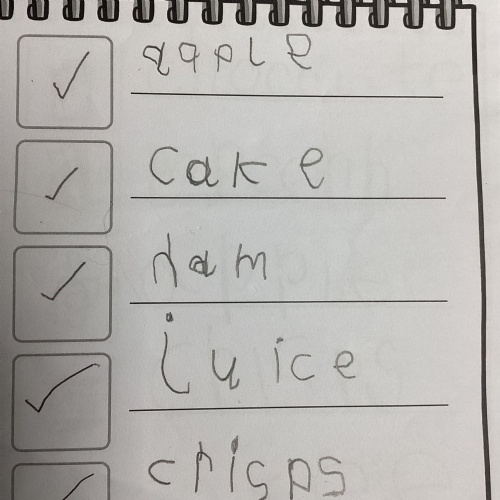 apple
cake
ham
juice
crisps